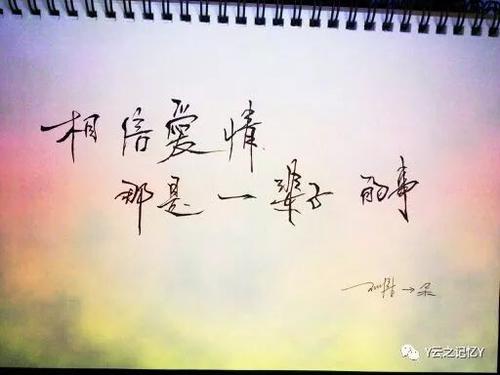 相信爱情
那是一辈子的事
一朵
Y云之记忆Y